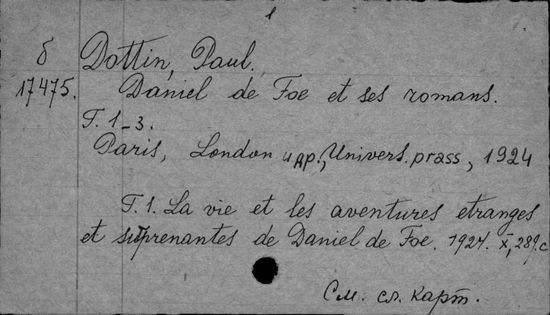 1
б
17475.
Dottin, Paul.
Daniel de Foe et ses romans.
T. 1-3.
Paris, London и др., Univers. prass, 1924
T. 1. La vie et les aventures etranges
et surprenantes de Daniel de Foe. 1924. X, 289 с
См. сл. карт.